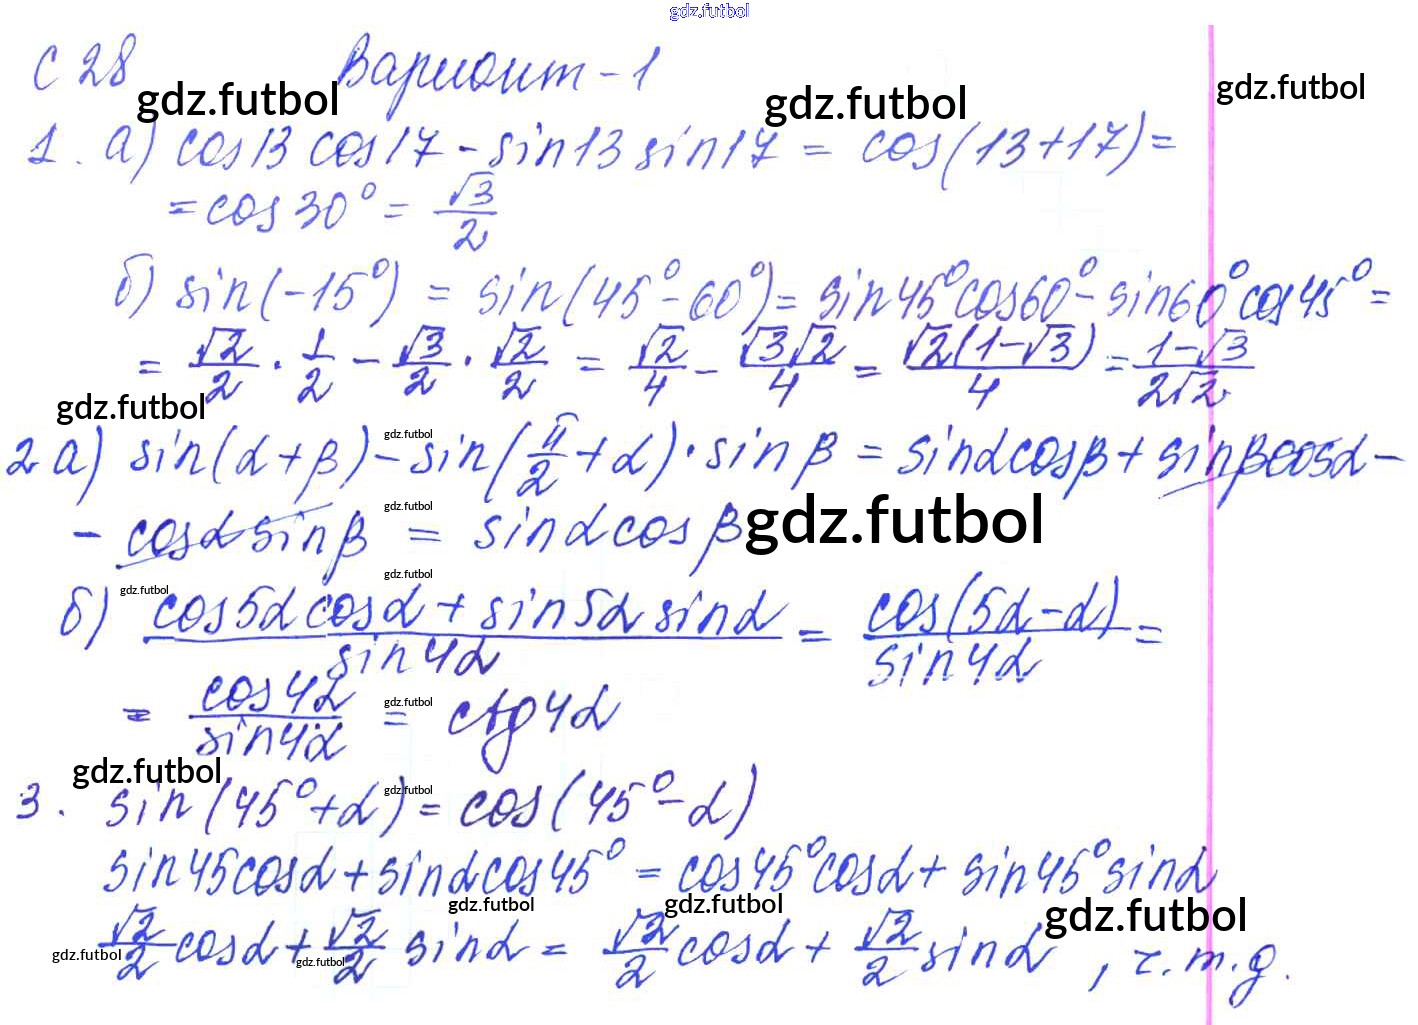 gdz.futbol
С 28 Вариант - 1
gdz.futbol gdz.futbol gdz.futbol
1. а) cos13 cos17 - sin13 sin17 = cos(13+17) =
= cos 30° = √3/2
б) sin(-15°) = sin(45°-60°) = sin45°cos60° - sin60°cos45° =
= √2/2 · 1/2 - √3/2 · √2/2 = √2/4 - √3√2/4 = √2(1-√3)/4 = 1-√3/2√2
gdz.futbol
2 а) sin(α+β) - sin(π/2+α)·sinβ = sinαcosβ + sinβcosα -
gdz.futbol
- cosα sinβ = sinαcosβ
gdz.futbol gdz.futbol
gdz.futbol gdz.futbol
б) cos5αcosα + sin5αsinα/sin4α = cos(5α-α)/sin4α =
= cos4α/sin4α = ctg4α
gdz.futbol
gdz.futbol
3. sin(45°+α) = cos(45°-α)
gdz.futbol
sin45cosα + sinαcos45° = cos45°cosα + sin45°sinα
gdz.futbol gdz.futbol gdz.futbol
√2/2 cosα + √2/2 sinα = √2/2 cosα + √2/2 sinα , ч.т.д.
gdz.futbol gdz.futbol